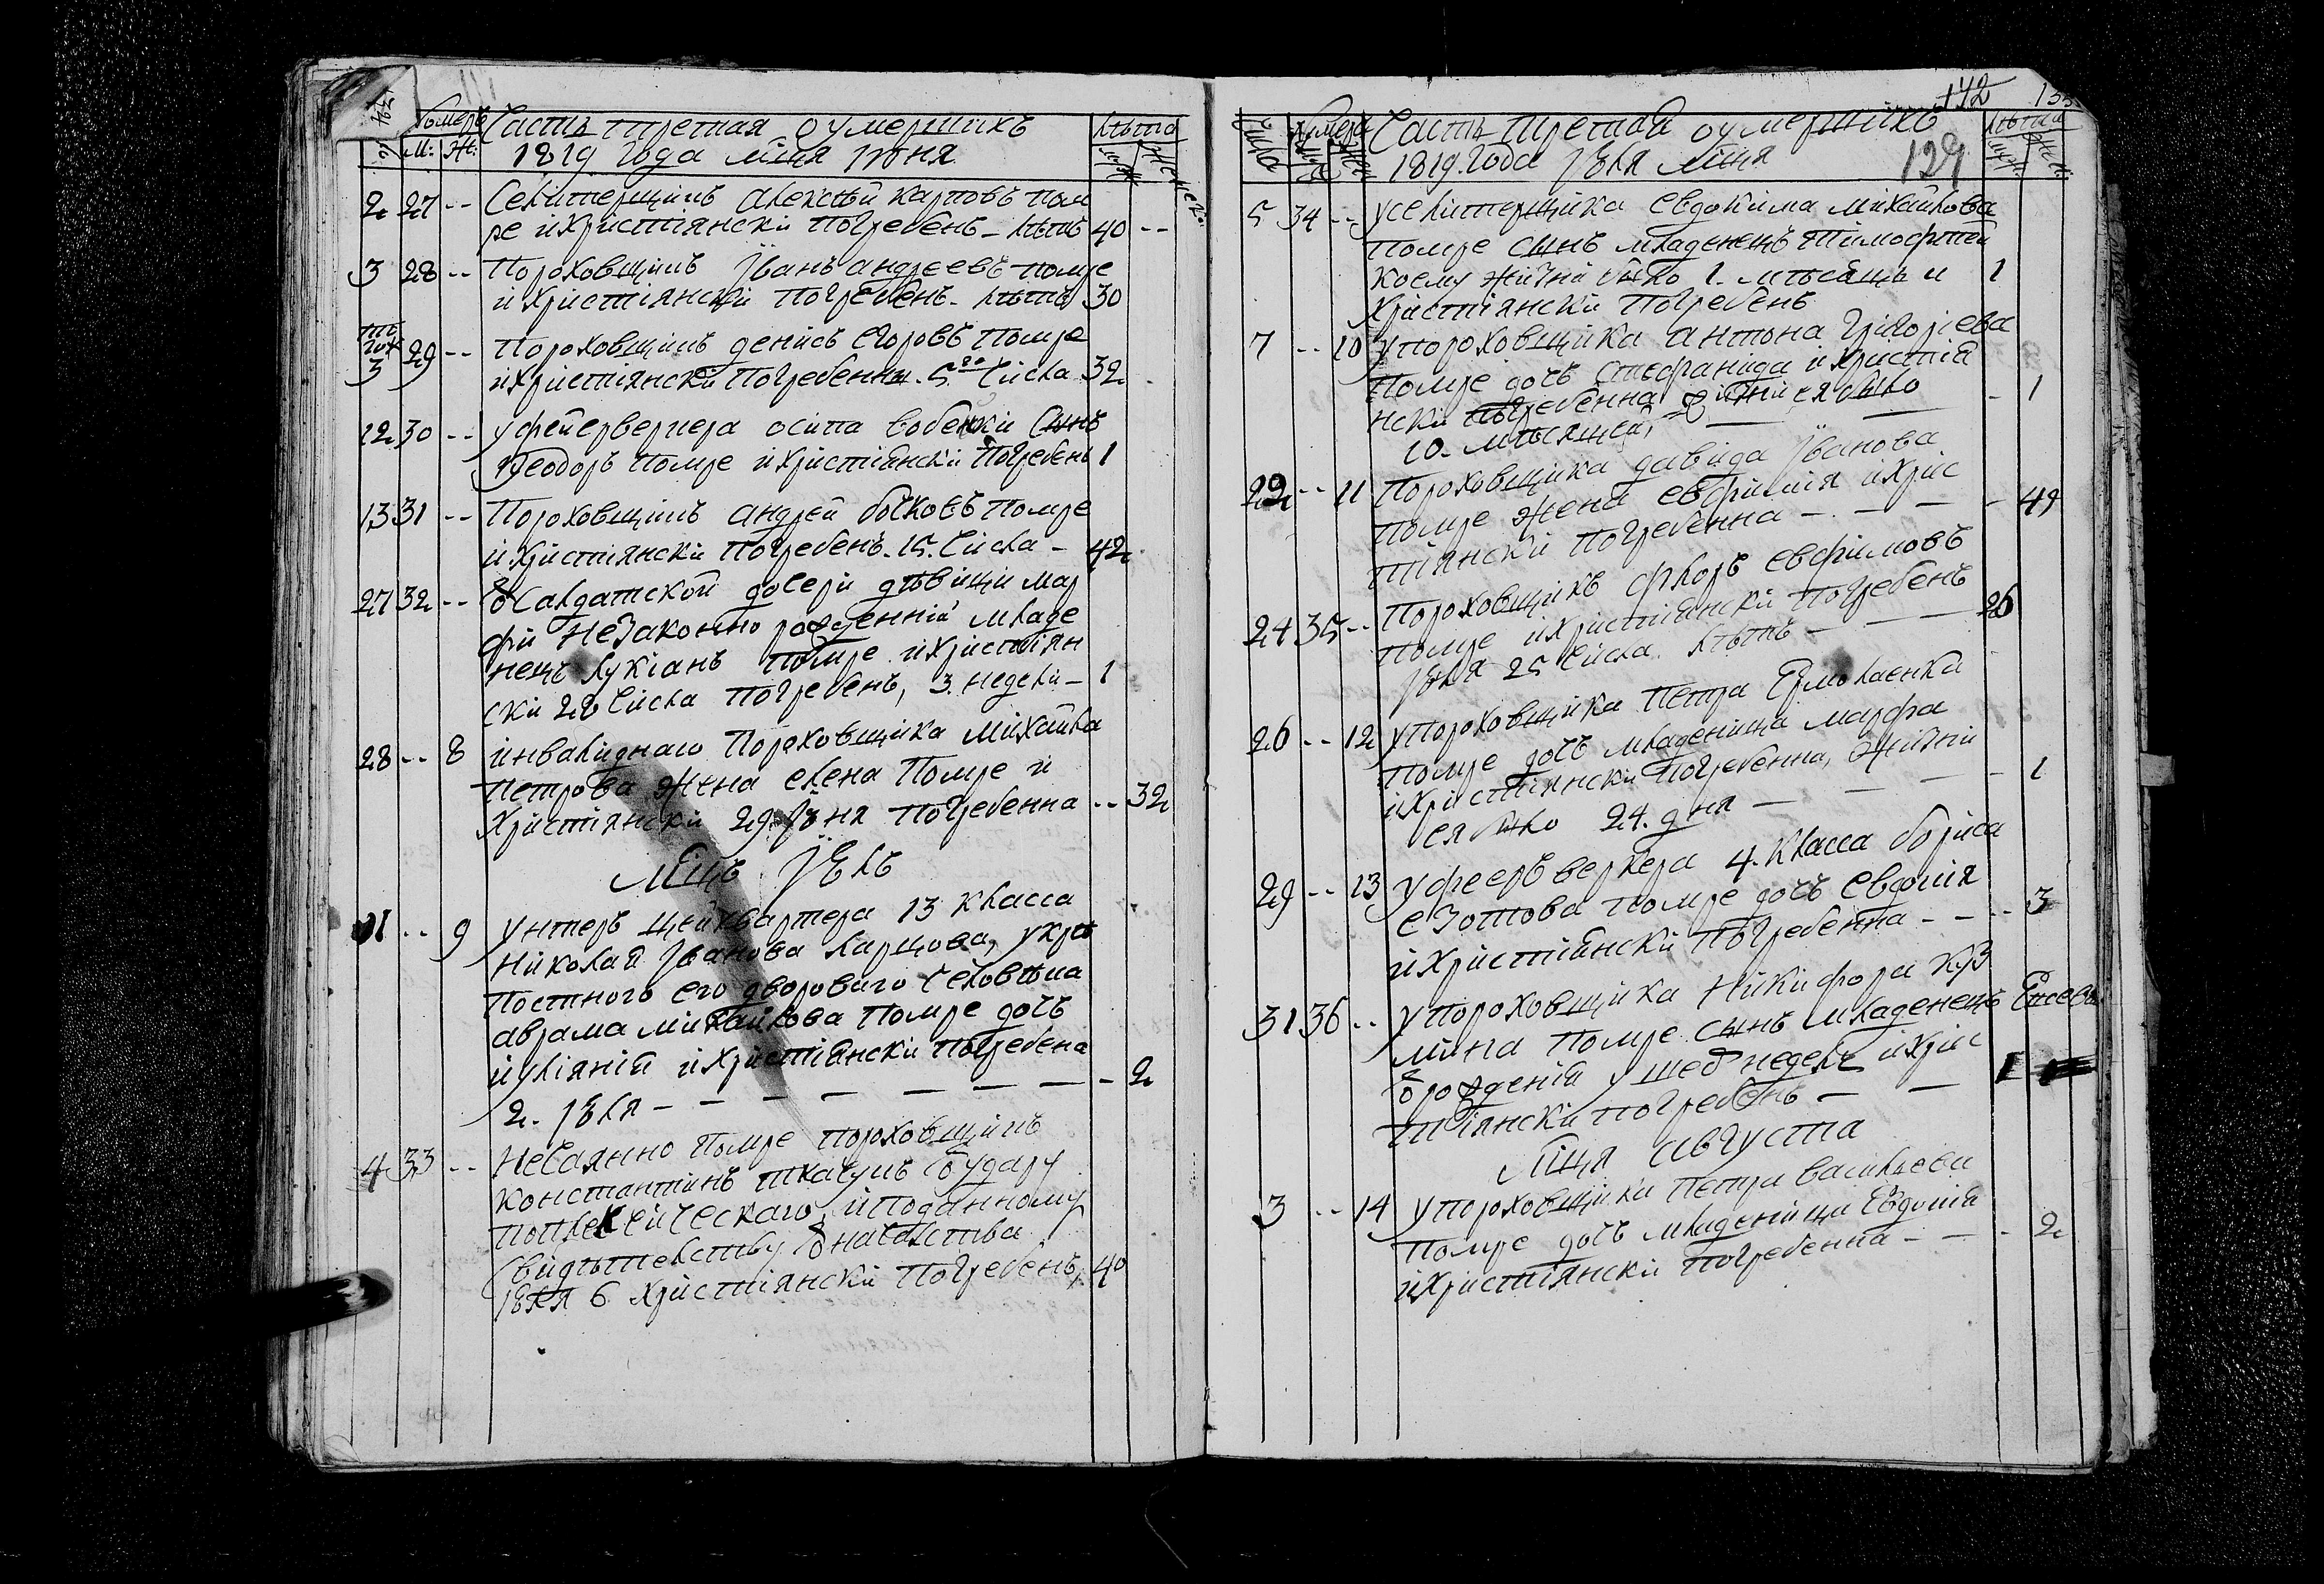 Номеръ Часть третая о умершихъ Лѣта
М: Ж: 1819 года мѣсяца июня
2 27 -- Селитерщикъ Алексѣй Карповъ пом
ре и Христіянски погребенъ - лѣтъ 40 --
3 28 -- Пороховщикъ Іванъ Андреевъ помре
и христіянски погребенъ - лѣтъ 30
тогож 3 29 -- Пороховщикъ Денисъ Егоровъ помре
и христіянски погребенны. 5го числа 32
12 30 -- У фейервернера Осипа сынъ
Феодоръ помре и христіянски погребенъ 1
13 31 -- Пороховщикъ Андрей Бочковъ помре
и христіянски погребенъ. 15. числа - 42
27 32 -- Ѿ Салдатской дочери дѣвицы Мар
фи незаконно рожденній младе
нецъ Лукіанъ помре и христіян
ски 28 числа погребенъ, 3. недели - 1
28 -- 8 инвалиднаго Пороховщика Михайла
Петрова жена Елена помре и
Христіянски 29. Іюня погребенна -- 32
Мѣсяцъ Іюль
1 -- 9 Унтеръ цейхвартера 13 класса
Николая Іванова Ларцова, укре
постного его дворового человѣка
Аврама Михайлова помре дочь
Иуліянія и христіянски погребена
2. Іюля - - - - - - - 2
4 33 -- Нечаянно помре пороховщикъ
Константинъ Ткачукъ ѿ удару
Поплекейческаго, и поданному
свидѣтельству ѿ началства
Іюля 6 христіянски погребенъ, 40
142
Числа Номера Часть третая о умершихъ Лѣта
1819. года Іюля мѣсяця 129
5 34 -- У селитерщика Евдокима Михайлова
помре сынъ младенецъ Тимофтей
коему жизни было 1. мѣсяцъ и 1
христіянски погребенъ
7 -- 10 У пороховщика Антона Григоріева
помре дочь Стефанида и христія
нски погребенна, жизни ея было - 1
10. мѣсяцей,
22 -- 11 Пороховщика Давида Іванова
помре жена Евфимія и хрис
тіянски погребенна - - - - 49
24 35 -- Пороховщикъ Флоръ Евфимовъ
помре и христіянски погребенъ
Іюля 25 числа лѣтъ - - - 26
26 -- 12 У пороховщика Петра Ермолаенка
помре дочь младеница Марфа
и христіянски погребенна, жизни
ея было 24. дня - - - - 1
29 -- 13 У феерверкера 4. класса Бориса
Езотова помре дочь Евдокія
и христіянски погребенна - - - 3
31 36 -- У пороховщика Никифора Куз
мина помре сынъ младенецъ
ѿ рожденія у шед недель и хрис
тіянски погребенъ - - 1
Мѣсяця Августа
3 -- 14 У пороховщика Петра Васильева
помре дочь младеница Евдокія
и христіянски погребенна - - - 2